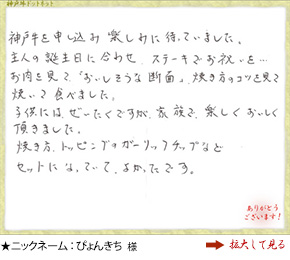 神戸牛ドットネット
神戸牛を申し込み 楽しみに待っていました。
主人の誕生日に合わせ、ステーキでお祝いを…
お肉を見て「おいしそうな断面」焼き方のコツを見て
焼いて食べました。
子供には、ぜいたくですが、家族で、楽しくおいしく
頂きました。
焼き方、トッピングのガーリックチップなど
セットになっていて、よかったです。
ありがとう
ございます!
★ニックネーム:ぴょんきち 様
拡大して見る